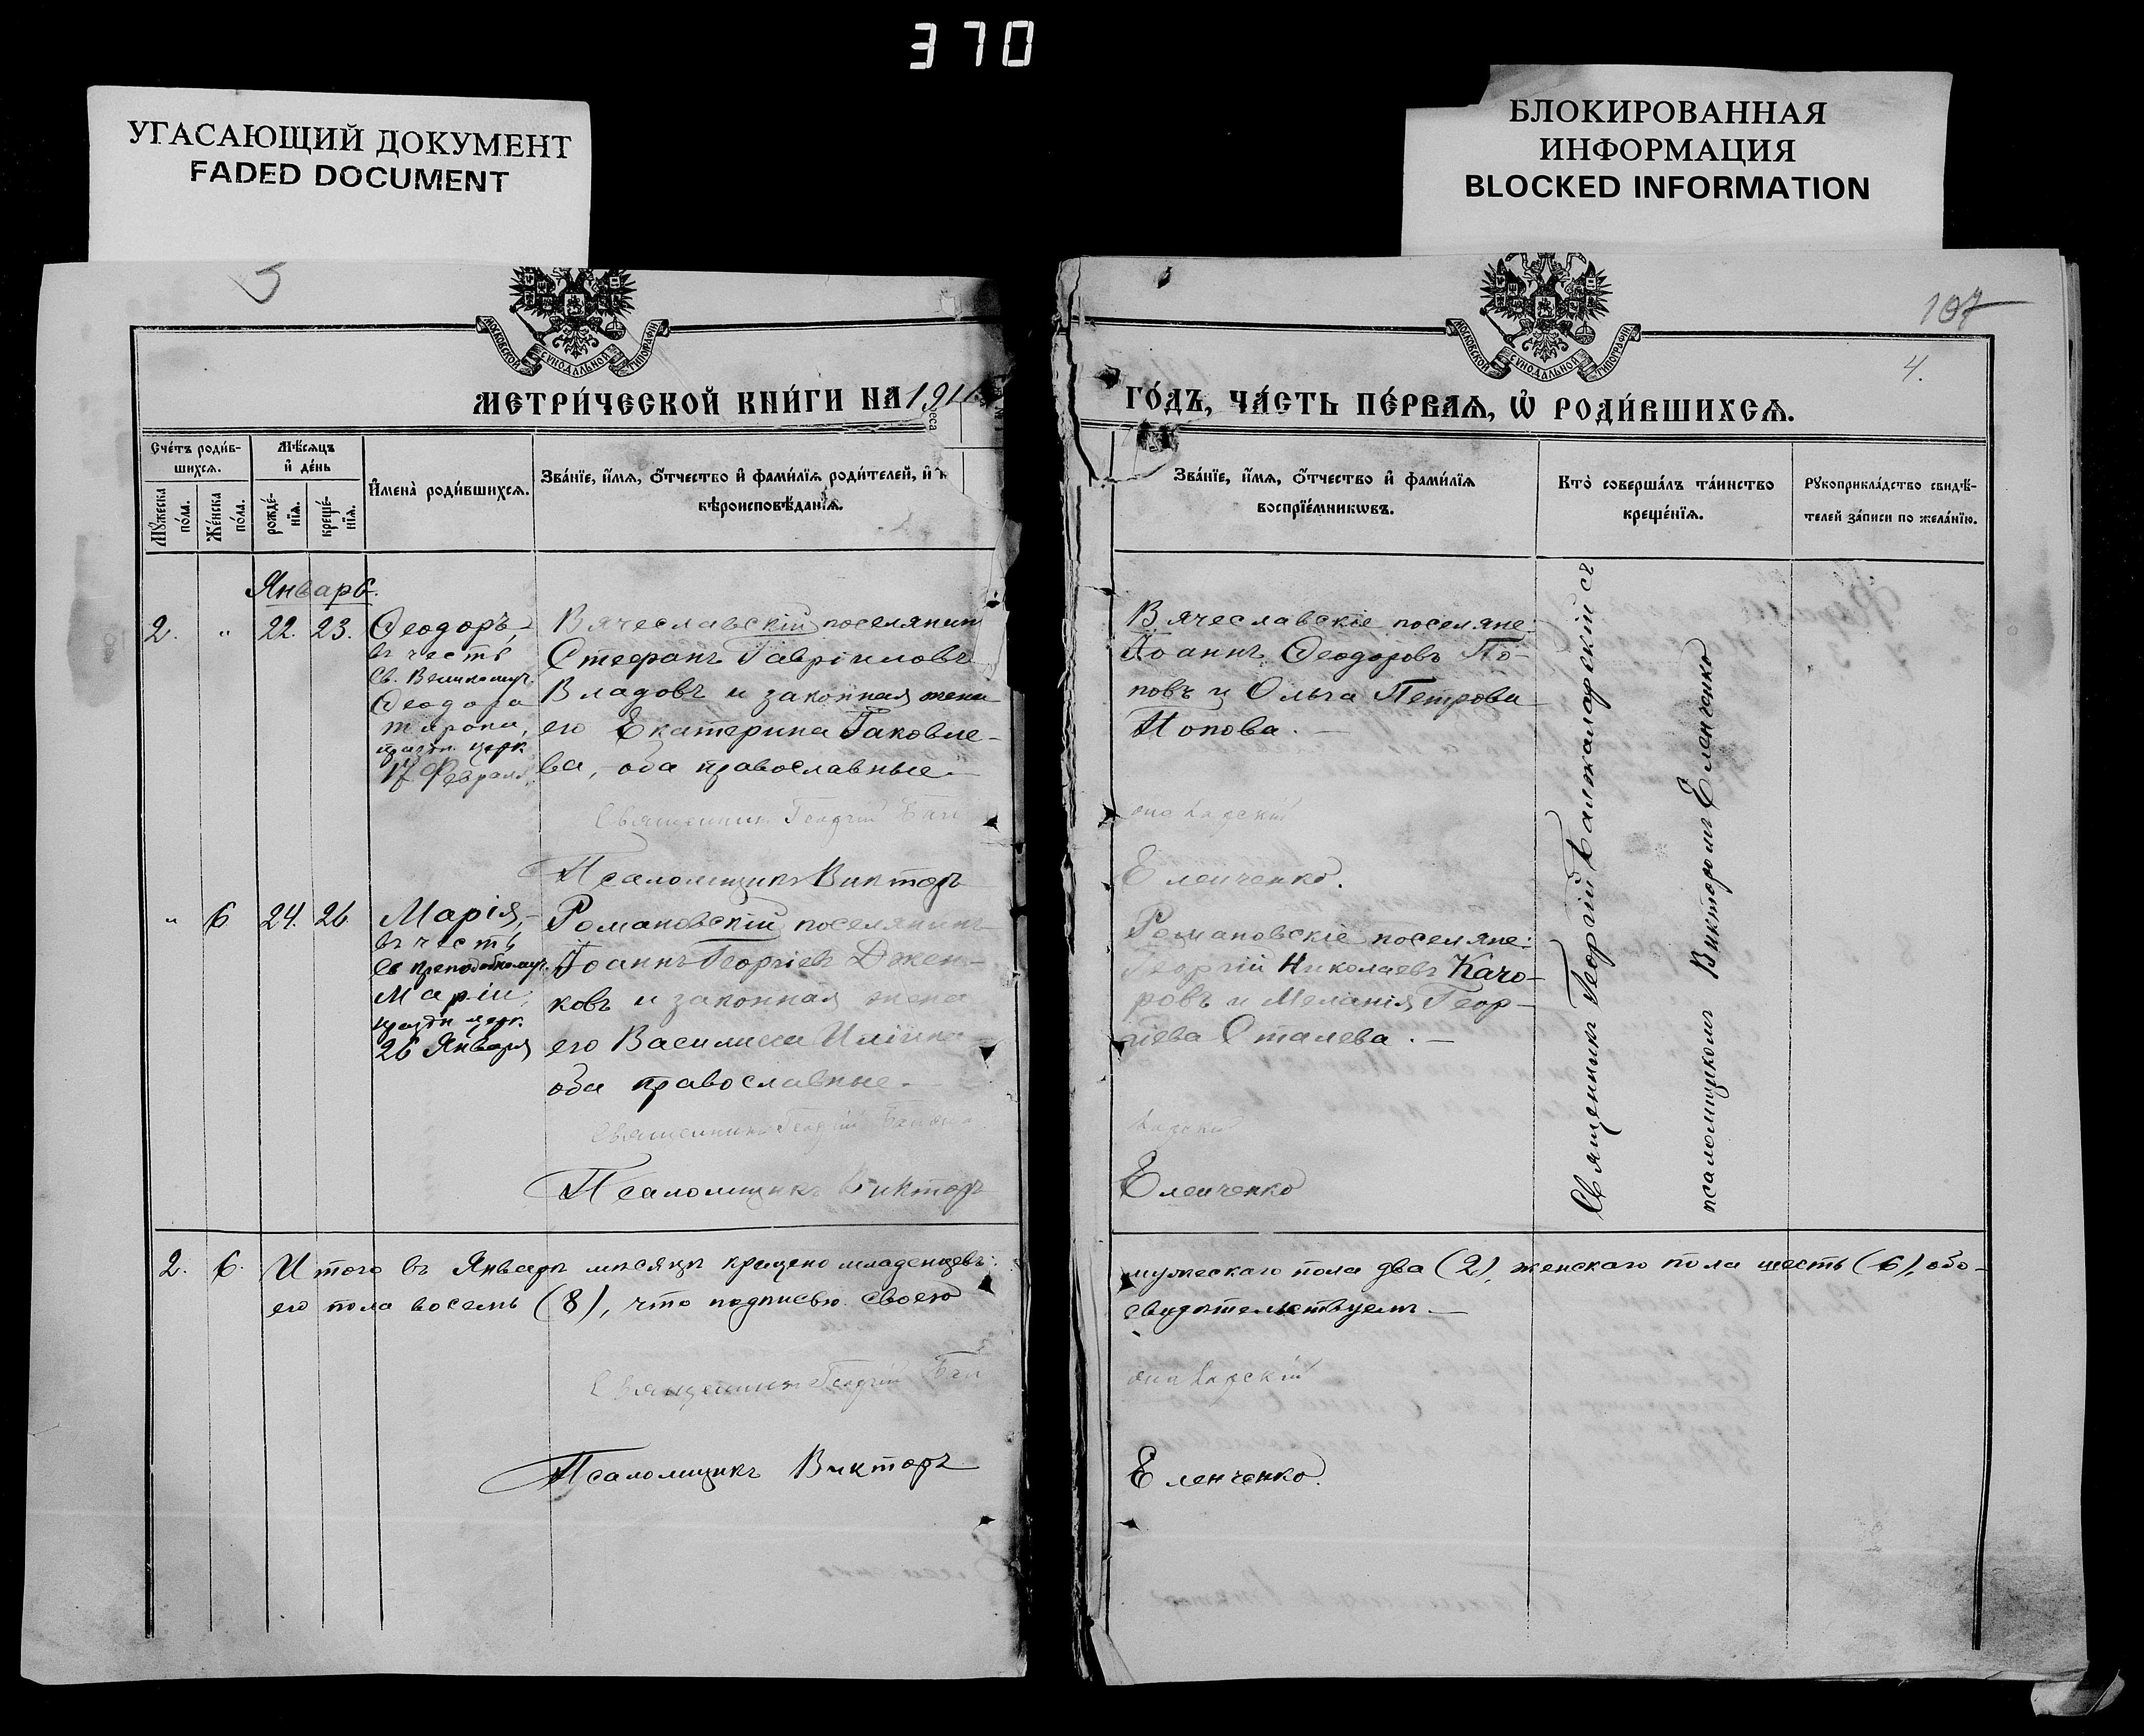 370
УГАСАЮЩИЙ ДОКУМЕНТ
FADED DOCUMENT
БЛОКИРОВАННАЯ
ИНФОРМАЦИЯ
BLOCKED INFORMATION
5
107
4.
МОСКОВСКОЙ СѴНОДАЛЬНОЙ ТИПОГРАФІИ
МОСКОВСКОЙ СѴНОДАЛЬНОЙ ТИПОГРАФІИ
МЕТРИ́ЧЕСКОЙ КНИ́ГИ НА 191
ГО́ДЪ, ЧА́СТЬ ПЕ́РВАѦ, Ѡ҆ РОДИ́ВШИХСѦ.
Сче́тъ роди́в-
шихсѧ.
Мѣ́сѧцъ
и҆ де́нь
Мꙋ́жеска
по́ла.
Же́нска
по́ла.
рожде́-
нїѧ.
креще́-
нїѧ.
И҆мена̀ роди́вшихсѧ.
Зва́нїе, и҆́мѧ, ѻ҆́тчество и҆ фами́лїѧ роди́телей, и҆
вѣроисповѣ́данїѧ.
Зва́нїе, и҆́мѧ, ѻ҆́тчество и҆ фами́лїѧ
воспрїе́мникѡвъ.
Кто̀ соверша́лъ та́инство
креще́нїѧ.
Рꙋкоприкла́дство свидѣ́-
телей за́писи по жела́нїю.
Январь.
2. " 22. 23.
Ѳеодоръ,
въ честь
Св. Великомуч.
Ѳеодора
Тирона,
праздн. церк.
17 Февраля.
Вячеславскій поселянинъ
Стефанъ Гавріиловъ
Владовъ и законная жена
его Екатерина Іаковле-
ва, оба православные.
Священникъ Георгій
Псаломщикъ Викторъ
Вячеславскіе поселяне:
Іоаннъ Ѳеодоровъ По-
повъ и Ольга Петрова
Попова.
Еленченко.
" 6 24. 26.
Марія,
въ честь
Св. преподобномуч.
Маріи,
праздн. церк.
26 Января
Романовскій поселянинъ
Іоаннъ Георгіевъ Джен-
ковъ и законная жена
его Василиса
оба православные.
Священникъ Георгій
Псаломщикъ Викторъ
Романовскіе поселяне:
Георгій Николаевъ Качо-
ровъ и Меланія Геор-
гіева Сталева.
Еленченко
Священникъ Георгій съ
псаломщикомъ Викторомъ Еленченко
2. 6. Итого въ Январѣ мѣсяцѣ крещено младенцевъ: мужескаго пола два (2), женскаго пола шесть (6), обо-
его пола восемь (8), что подписью своею свидѣтельствуемъ.
Священникъ Георгій
Псаломщикъ Викторъ Еленченко.